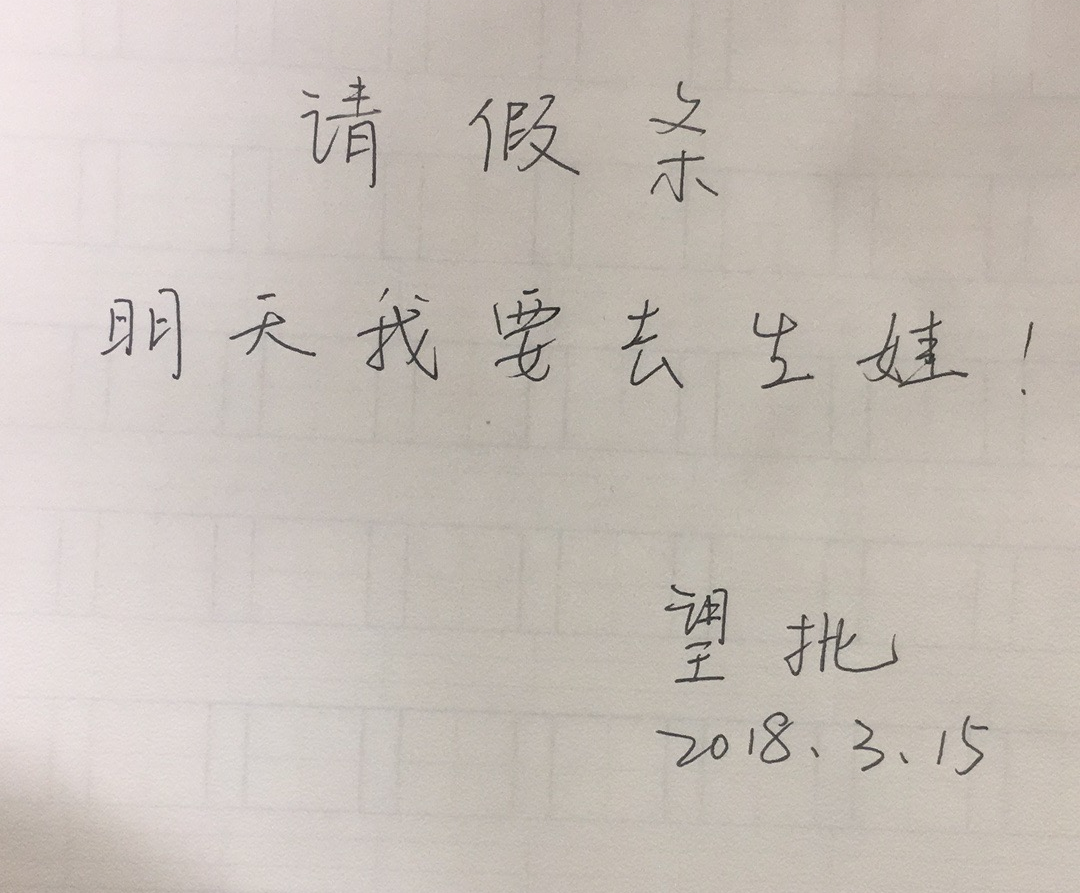 请假条
明天我要去生娃!
望批
2018、3、15